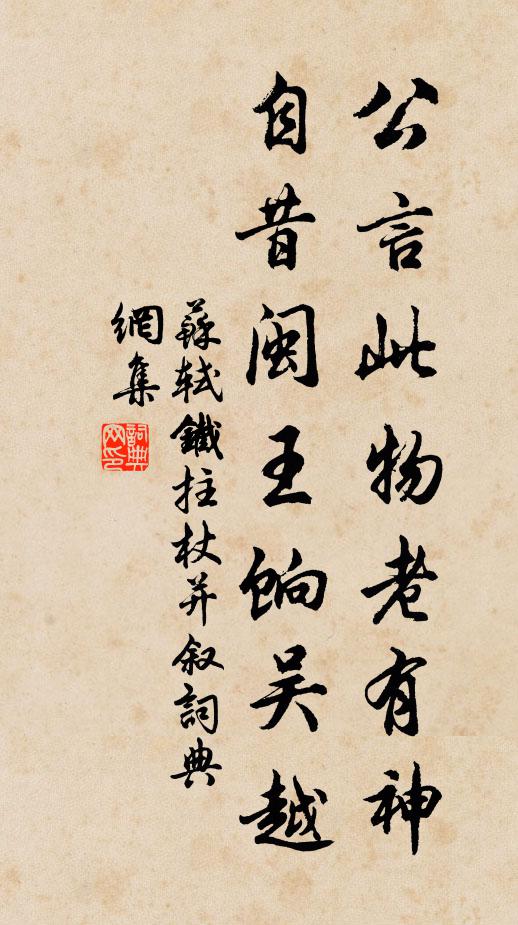 公言此物老有神
自昔闽王饷吴越
蘇軾鐵拄杖并叙詞典
網集
詞典
网印